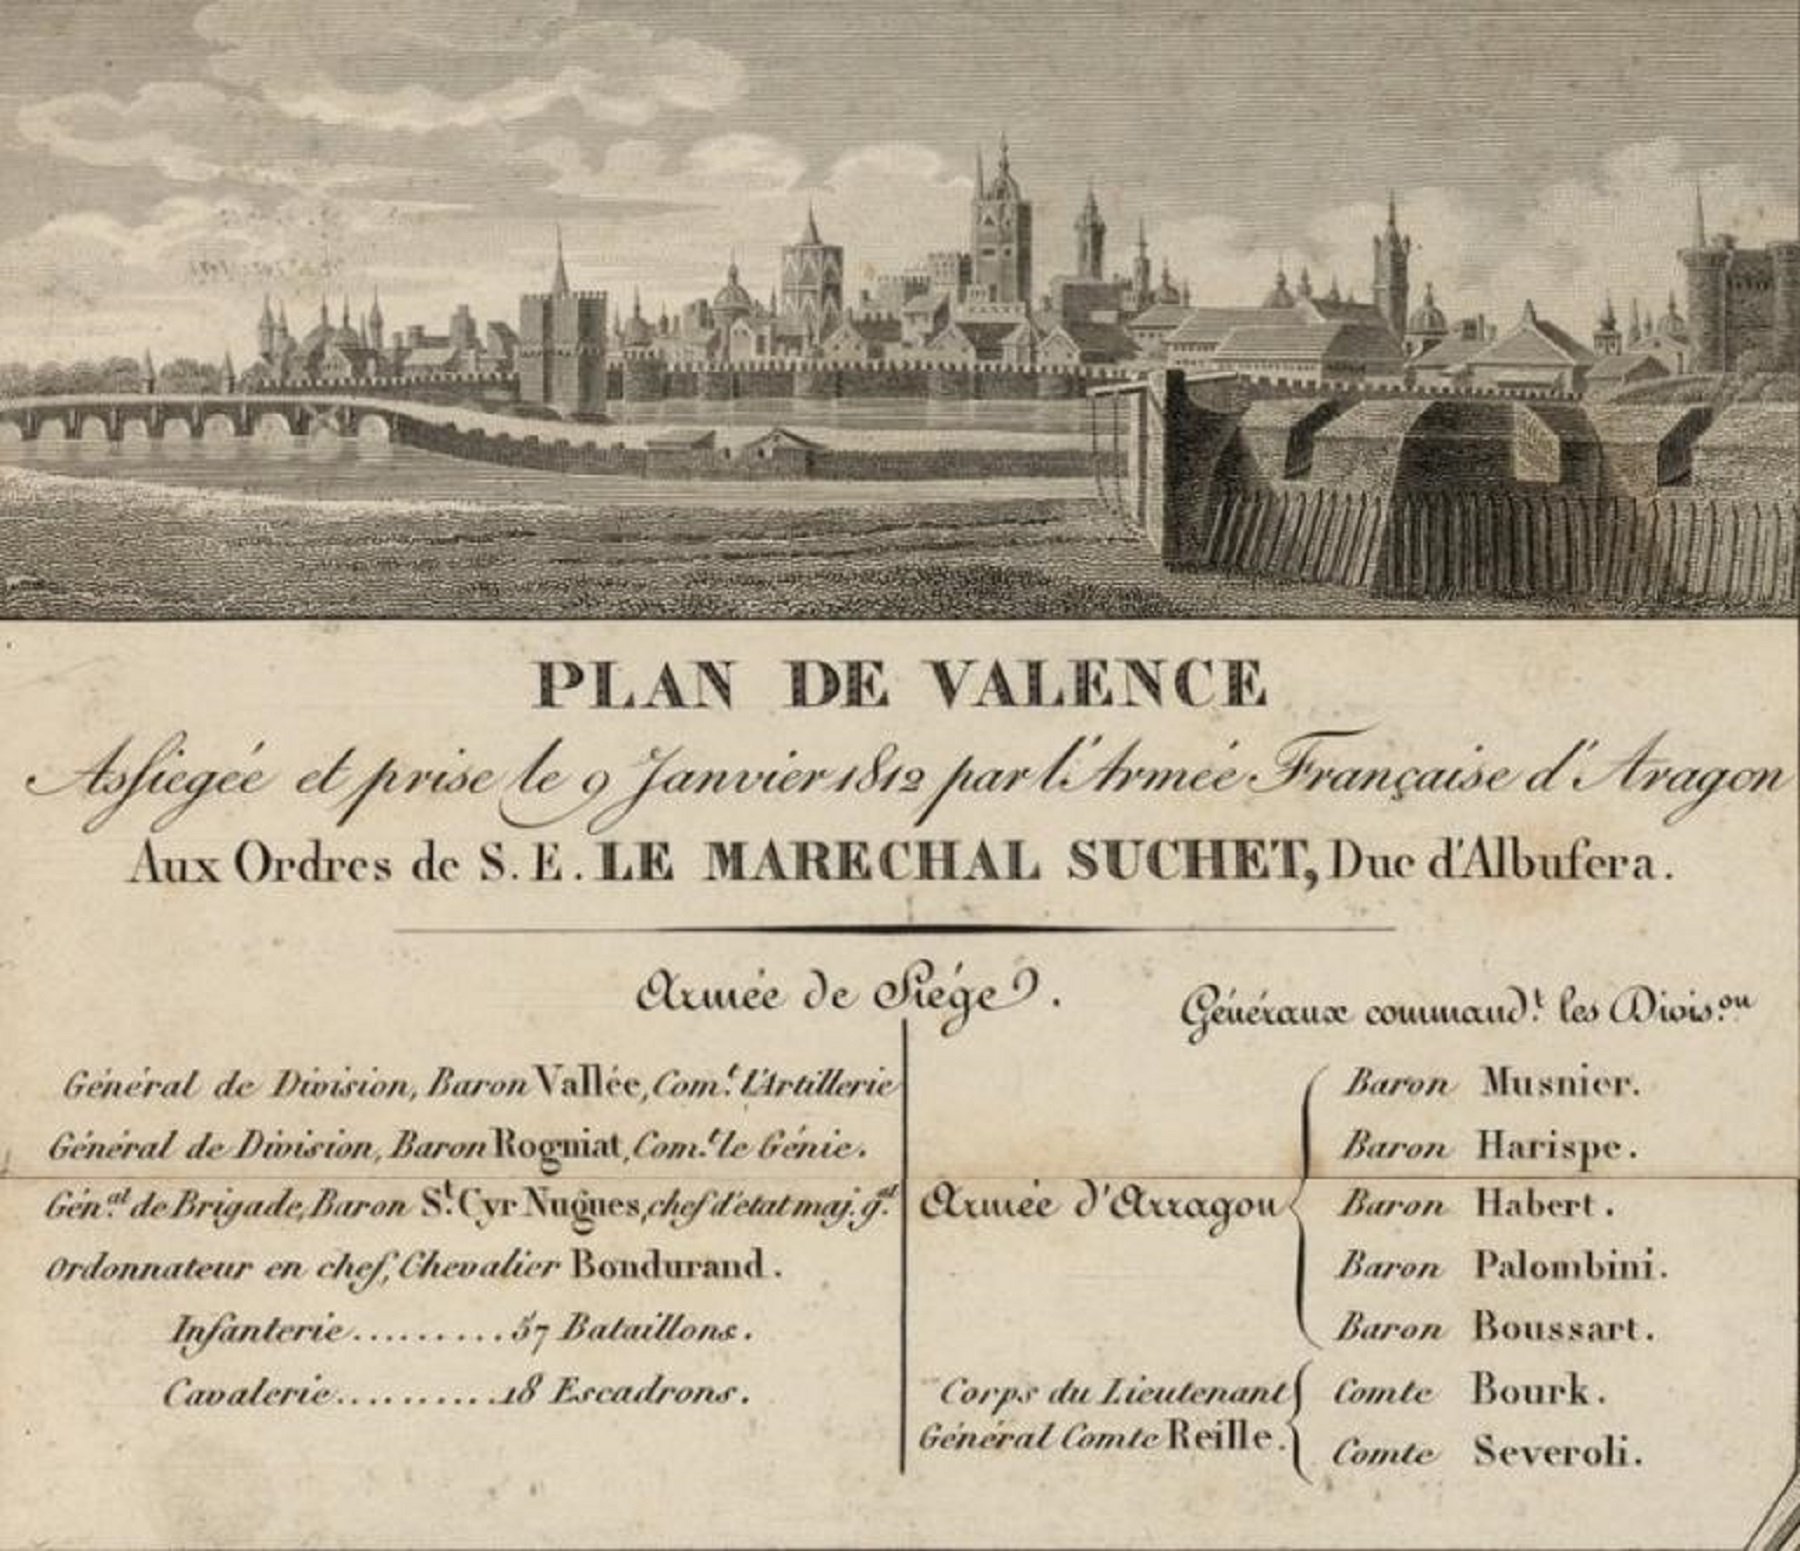 PLAN DE VALENCE
Assiegée et prise le 9 Janvier 1812 par l'Armée Française d'Aragon
Aux Ordres de S. E. LE MARECHAL SUCHET, Duc d'Albufera.
Armée de Siége.
Généraux command.t les Divis.on
Général de Division, Baron Vallée, Com.t l'Artillerie
Général de Division, Baron Rogniat, Com.t le Génie.
Gén.al de Brigade, Baron S.t Cyr Nugues, chef d'état maj. g.al
Ordonnateur en chef, Chevalier Bondurand.
Infanterie.........57 Bataillons.
Cavalerie..........18 Escadrons.
Armée d'Arragon
Baron Musnier.
Baron Harispe.
Baron Habert.
Baron Palombini.
Baron Boussart.
Corps du Lieutenant
Général Comte Reille.
Comte Bourk.
Comte Severoli.